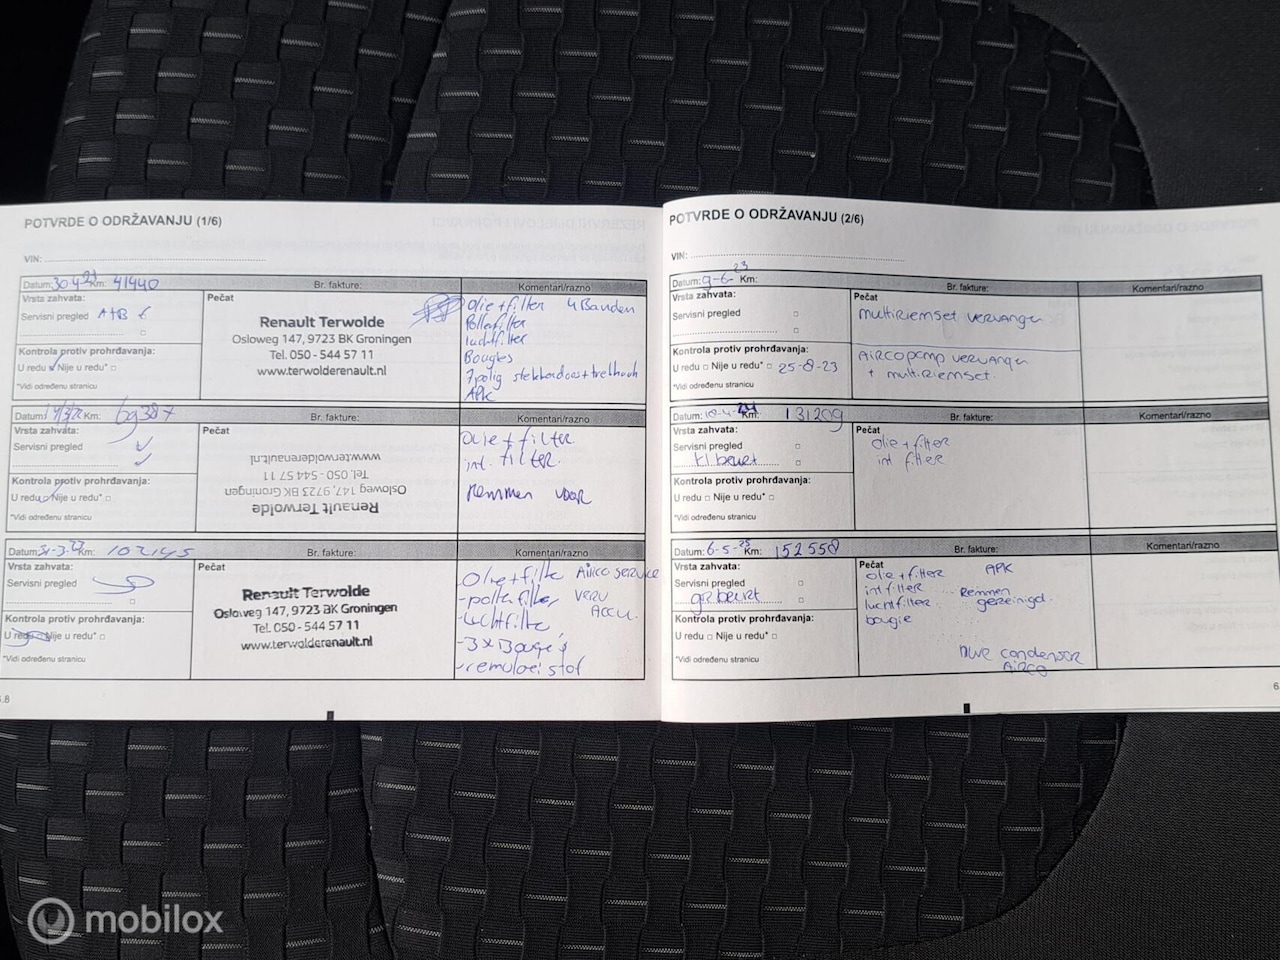 POTVRDE O ODRŽAVANJU (1/6)
VIN:
Datum: 30 4 Km: 41440
Br. fakture:
Komentari/razno
Vrsta zahvata:
Servisni pregled A+B
Kontrola protiv prohrđavanja:
U redu Nije u redu*
*Vidi određenu stranicu
Pečat
Renault Terwolde
Osloweg 147, 9723 BK Groningen
Tel. 050 - 544 57 11
www.terwolderenault.nl
Olie + filter 4 Banden
Pollenfilter
luchtfilter
Bougies
7 polig stekkerdoos + trekhaak
APK
Datum: Km: 69387
Br. fakture:
Komentari/razno
Vrsta zahvata:
Servisni pregled
Kontrola protiv prohrđavanja:
U redu Nije u redu*
*Vidi određenu stranicu
Pečat
Renault Terwolde
Osloweg 147, 9723 BK Groningen
Tel. 050 - 544 57 11
www.terwolderenault.nl
Olie + filter.
int. filter.
Remmen voor
Datum: 31-3- Km: 102145
Br. fakture:
Komentari/razno
Vrsta zahvata:
Servisni pregled
Kontrola protiv prohrđavanja:
U redu Nije u redu*
*Vidi određenu stranicu
Pečat
Renault Terwolde
Osloweg 147, 9723 BK Groningen
Tel. 050 - 544 57 11
www.terwolderenault.nl
- Olie + filte Airco service
- pollenfilter Accu
- luchtfilte
- 3x Bougie's
- remvloeistof
POTVRDE O ODRŽAVANJU (2/6)
VIN:
Datum: 9-6-23 Km:
Br. fakture:
Komentari/razno
Vrsta zahvata:
Servisni pregled
Kontrola protiv prohrđavanja:
U redu Nije u redu* 25-8-23
*Vidi određenu stranicu
Pečat
multiriemset vervangen
Aircopomp vervangen
+ multiriemset.
Datum: 10-4-24 Km: 131209
Br. fakture:
Komentari/razno
Vrsta zahvata:
Servisni pregled
kl beurt
Kontrola protiv prohrđavanja:
U redu Nije u redu*
*Vidi određenu stranicu
Pečat
olie + filter
int filter
Datum: 6-5-25 Km: 152558
Br. fakture:
Komentari/razno
Vrsta zahvata:
Servisni pregled
gr beurt
Kontrola protiv prohrđavanja:
U redu Nije u redu*
*Vidi određenu stranicu
Pečat
olie + filter APK
int filter Remmen
luchtfilter gereinigd.
bougie
nwe condensor
Airco
mobilox